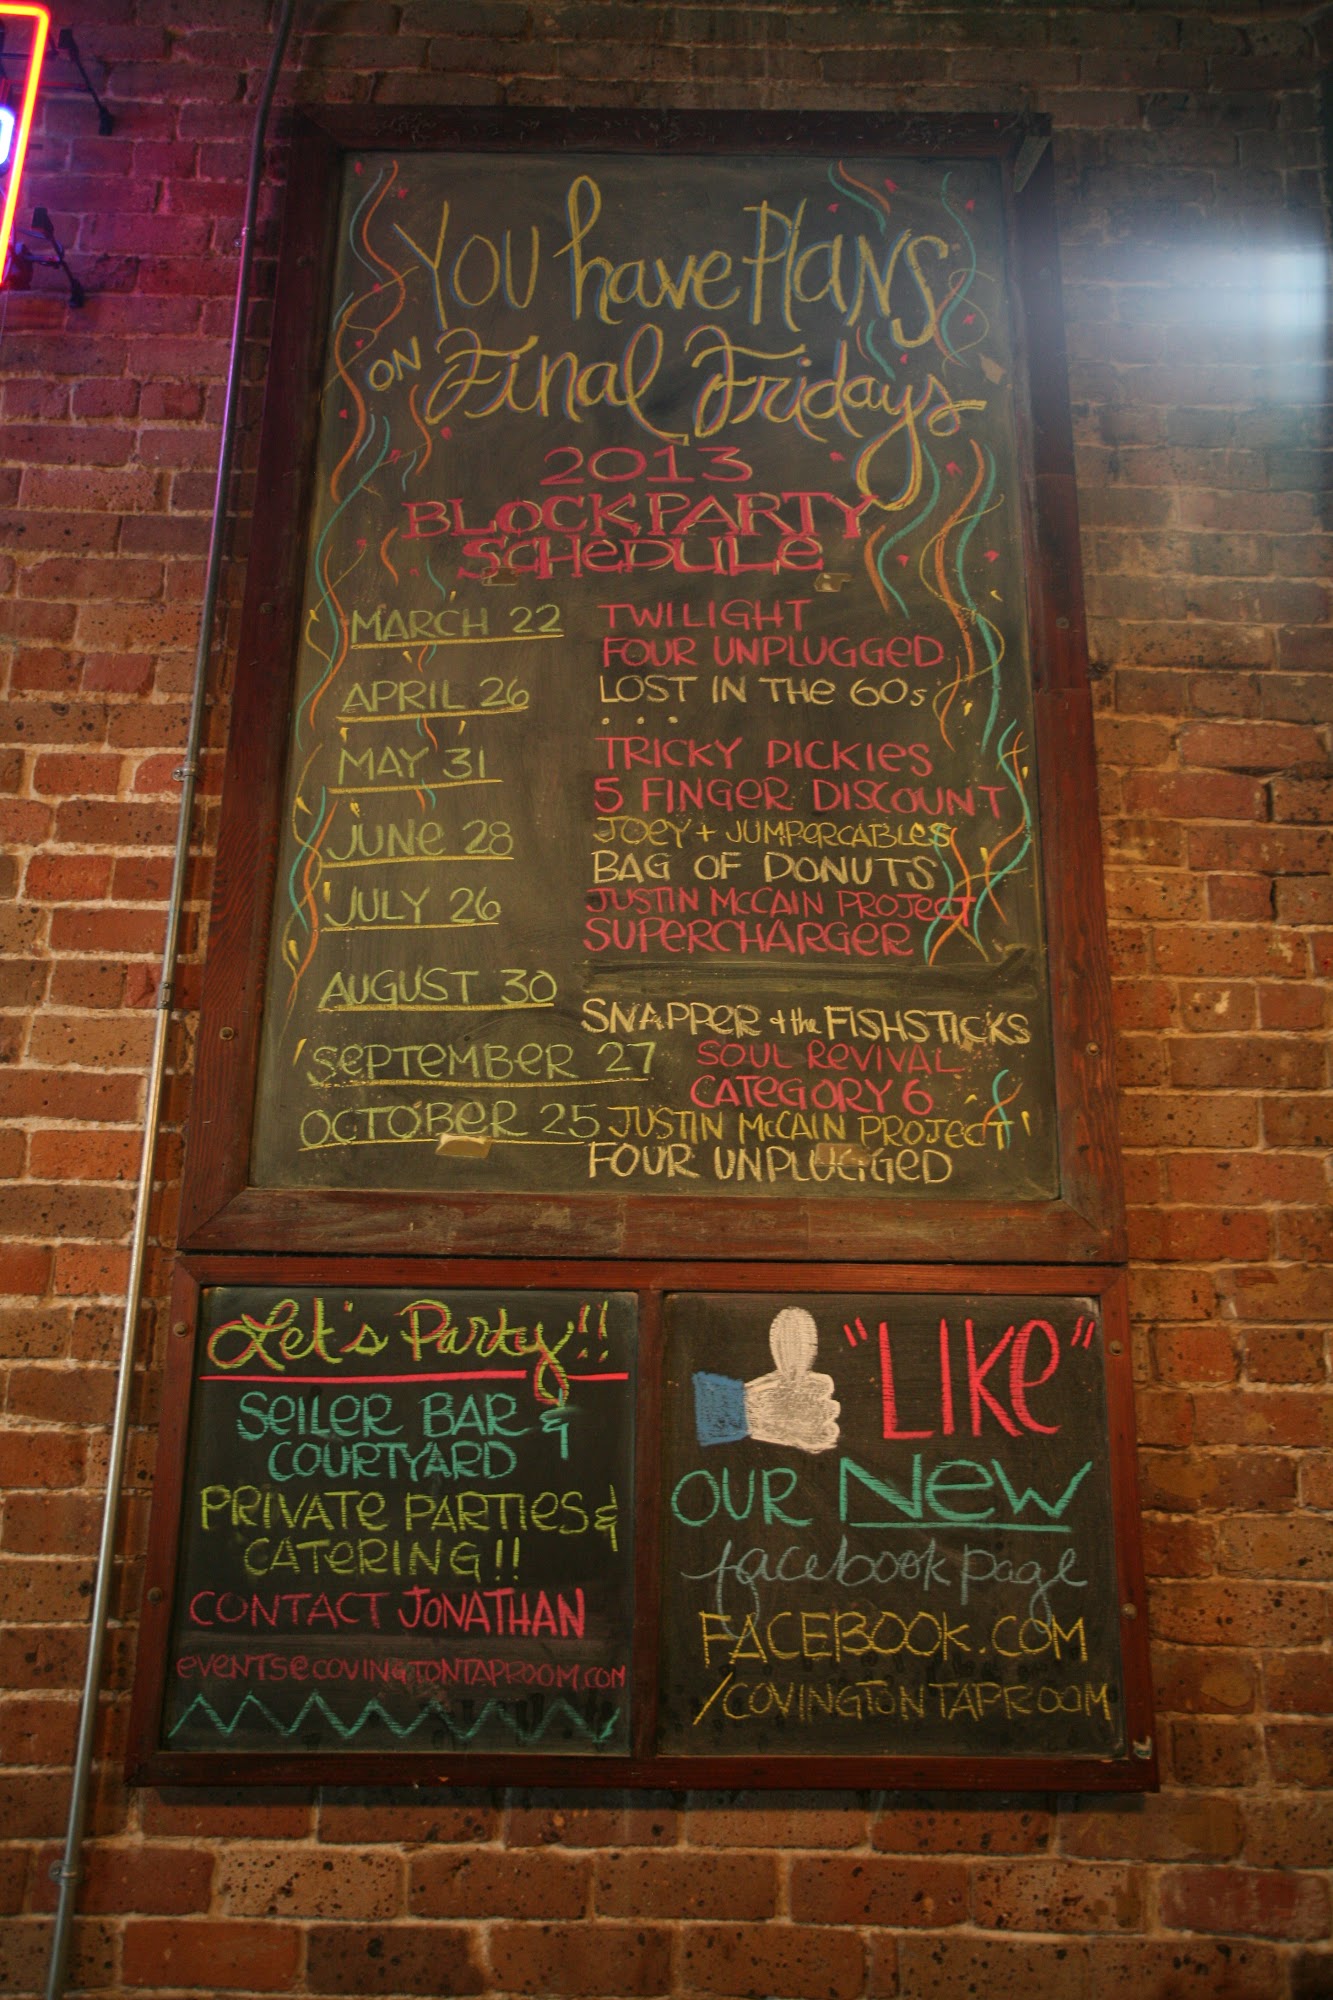 You have Plans
on Final Fridays
2013
BLOCK PARTY
SCHEDULE
MARCH 22 TWILIGHT
FOUR UNPLUGGED
APRIL 26 LOST IN THE 60s
. . .
MAY 31 TRICKY DICKIES
5 FINGER DISCOUNT
JUNE 28 JOEY + JUMPERCABLES
BAG OF DONUTS
JULY 26 JUSTIN McCAIN PROJECT
SUPERCHARGER
AUGUST 30 SNAPPER & the FISHSTICKS
SEPTEMBER 27 SOUL REVIVAL
CATEGORY 6
OCTOBER 25 JUSTIN McCAIN PROJECT
FOUR UNPLUGGED
Let's Party!!
SEILER BAR &
COURTYARD
PRIVATE PARTIES &
CATERING!!
CONTACT JONATHAN
EVENTS@COVINGTONTAPROOM.COM
"LIKE"
OUR NEW
facebook page
FACEBOOK.COM
/COVINGTONTAPROOM